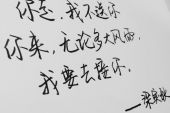 你走,我不送你
你来,无论多大风雨,
我要去接你。
——梁实秋